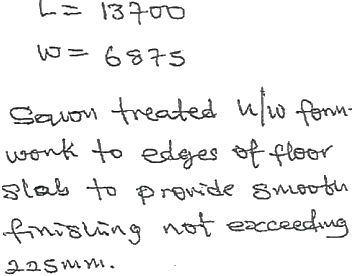 L = 13700
W = 6875
Sawn treated h/w form-
work to edges of floor
slab to provide smooth
finishing not exceeding
225mm.